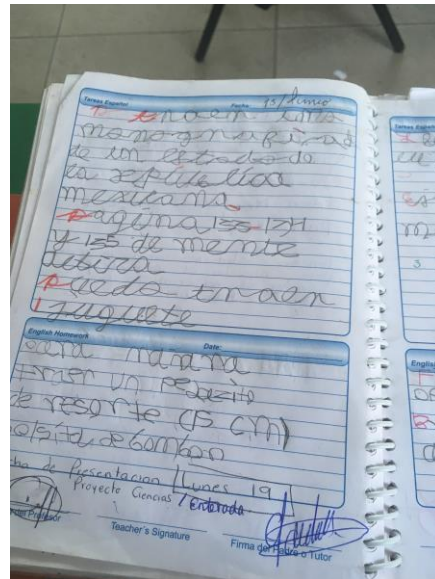 Tareas Español Fecha: 15/Junio
traen una
monografia
de un estado de
la república
mexicana.
Pagina 133-134
y 135 de mente
Puedo traen
1 juguete
English Homework Date:
para mañana
traer un pedazito
de resorte (15 cm)
bolsita de bombon
Presentacion / Lunes 19
Proyecto Ciencias / Enterada
Teacher's Signature
Firma del Padre o Tutor